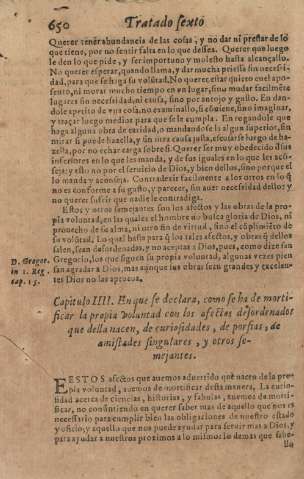 650 Tratado sexto
Querer tener abundancia de las cosas, y no dar ni prestar de lo
que tiene, por no sentir falta en lo que dessea. Querer que luego
le den lo que pide, y ser importuno y molesto hasta alcançallo.
No querer esperar, quando llama, y dar mucha priessa sin necessi-
dad, para que se haga su volũtad. No querer estar quieto en el apo-
sento, ni morar mucho tiempo en un lugar, sino mudar facilmẽte
lugares sin necessidad, ni causa, sino por antojo y gusto. En dan-
dole apetito de otra cosa, no
y traçar luego medios para que se le cumpla. En rogandole que
haga alguna obra de caridad, o mandandosela algun superior, sin
mirar si puede hazella, y sin otra causa justa, escusarse luego de ha-
zella, por no echar carga sobre si. Querer ser muy obedecido d̃ sus
inferiores en lo que les manda, y de sus iguales en lo que les acõ-
seja: y esto no por el servicio de Dios, y bien dellos, sino porque el
lo manda y aconseja. Contradezir facilmente a los otros en lo q̃
no es conforme a su gusto, y parecer, sin auer necessidad dello: y
no querer sufrir que nadie le contradiga.
Estos y otros semejantes son los afectos y las obras de la pro-
pia voluntad, en las quales el hombre no busca gloria de Dios, ni
prouecho de su alma, ni otro fin de virtud, sino el cõplimiẽto de
su volũtad. Lo qual basta para q̃ los tales afectos, y obras q̃ dellos
salen, sean desordenadas, y no aceptas a Dios, pues, como dize san
Gregorio, los que siguen su propia voluntad, algunas vezes pien
san agradar a Dios, mas aunque sus obras sean grandes y excelen-
tes Dios no las aprueua.
D. Gregor.
in 1. Reg.
cap. 15.
Capitulo IIII. En que se declara, como se ha de morti-
ficar la propia voluntad con los afectos desordenados
que della nacen, de curiosidades, de porfias, de
amistades singulares, y otros se-
mejantes.
ESTOS afectos que auemos aduertido que nacen de la pro-
pia voluntad, auemos de mortificar desta manera. La curio-
sidad acerca de ciencias, historias, y fabulas, auemos de morti-
ficar, no consintiendo en querer saber mas de aquello que nos es
necessario para cumplir bien las obligaciones de nuestro estado
y oficio, y aquello que nos puede ayudar para seruir mas a Dios, y
para ayudar a nuestros proximos a lo mismo: lo demas que sabe-